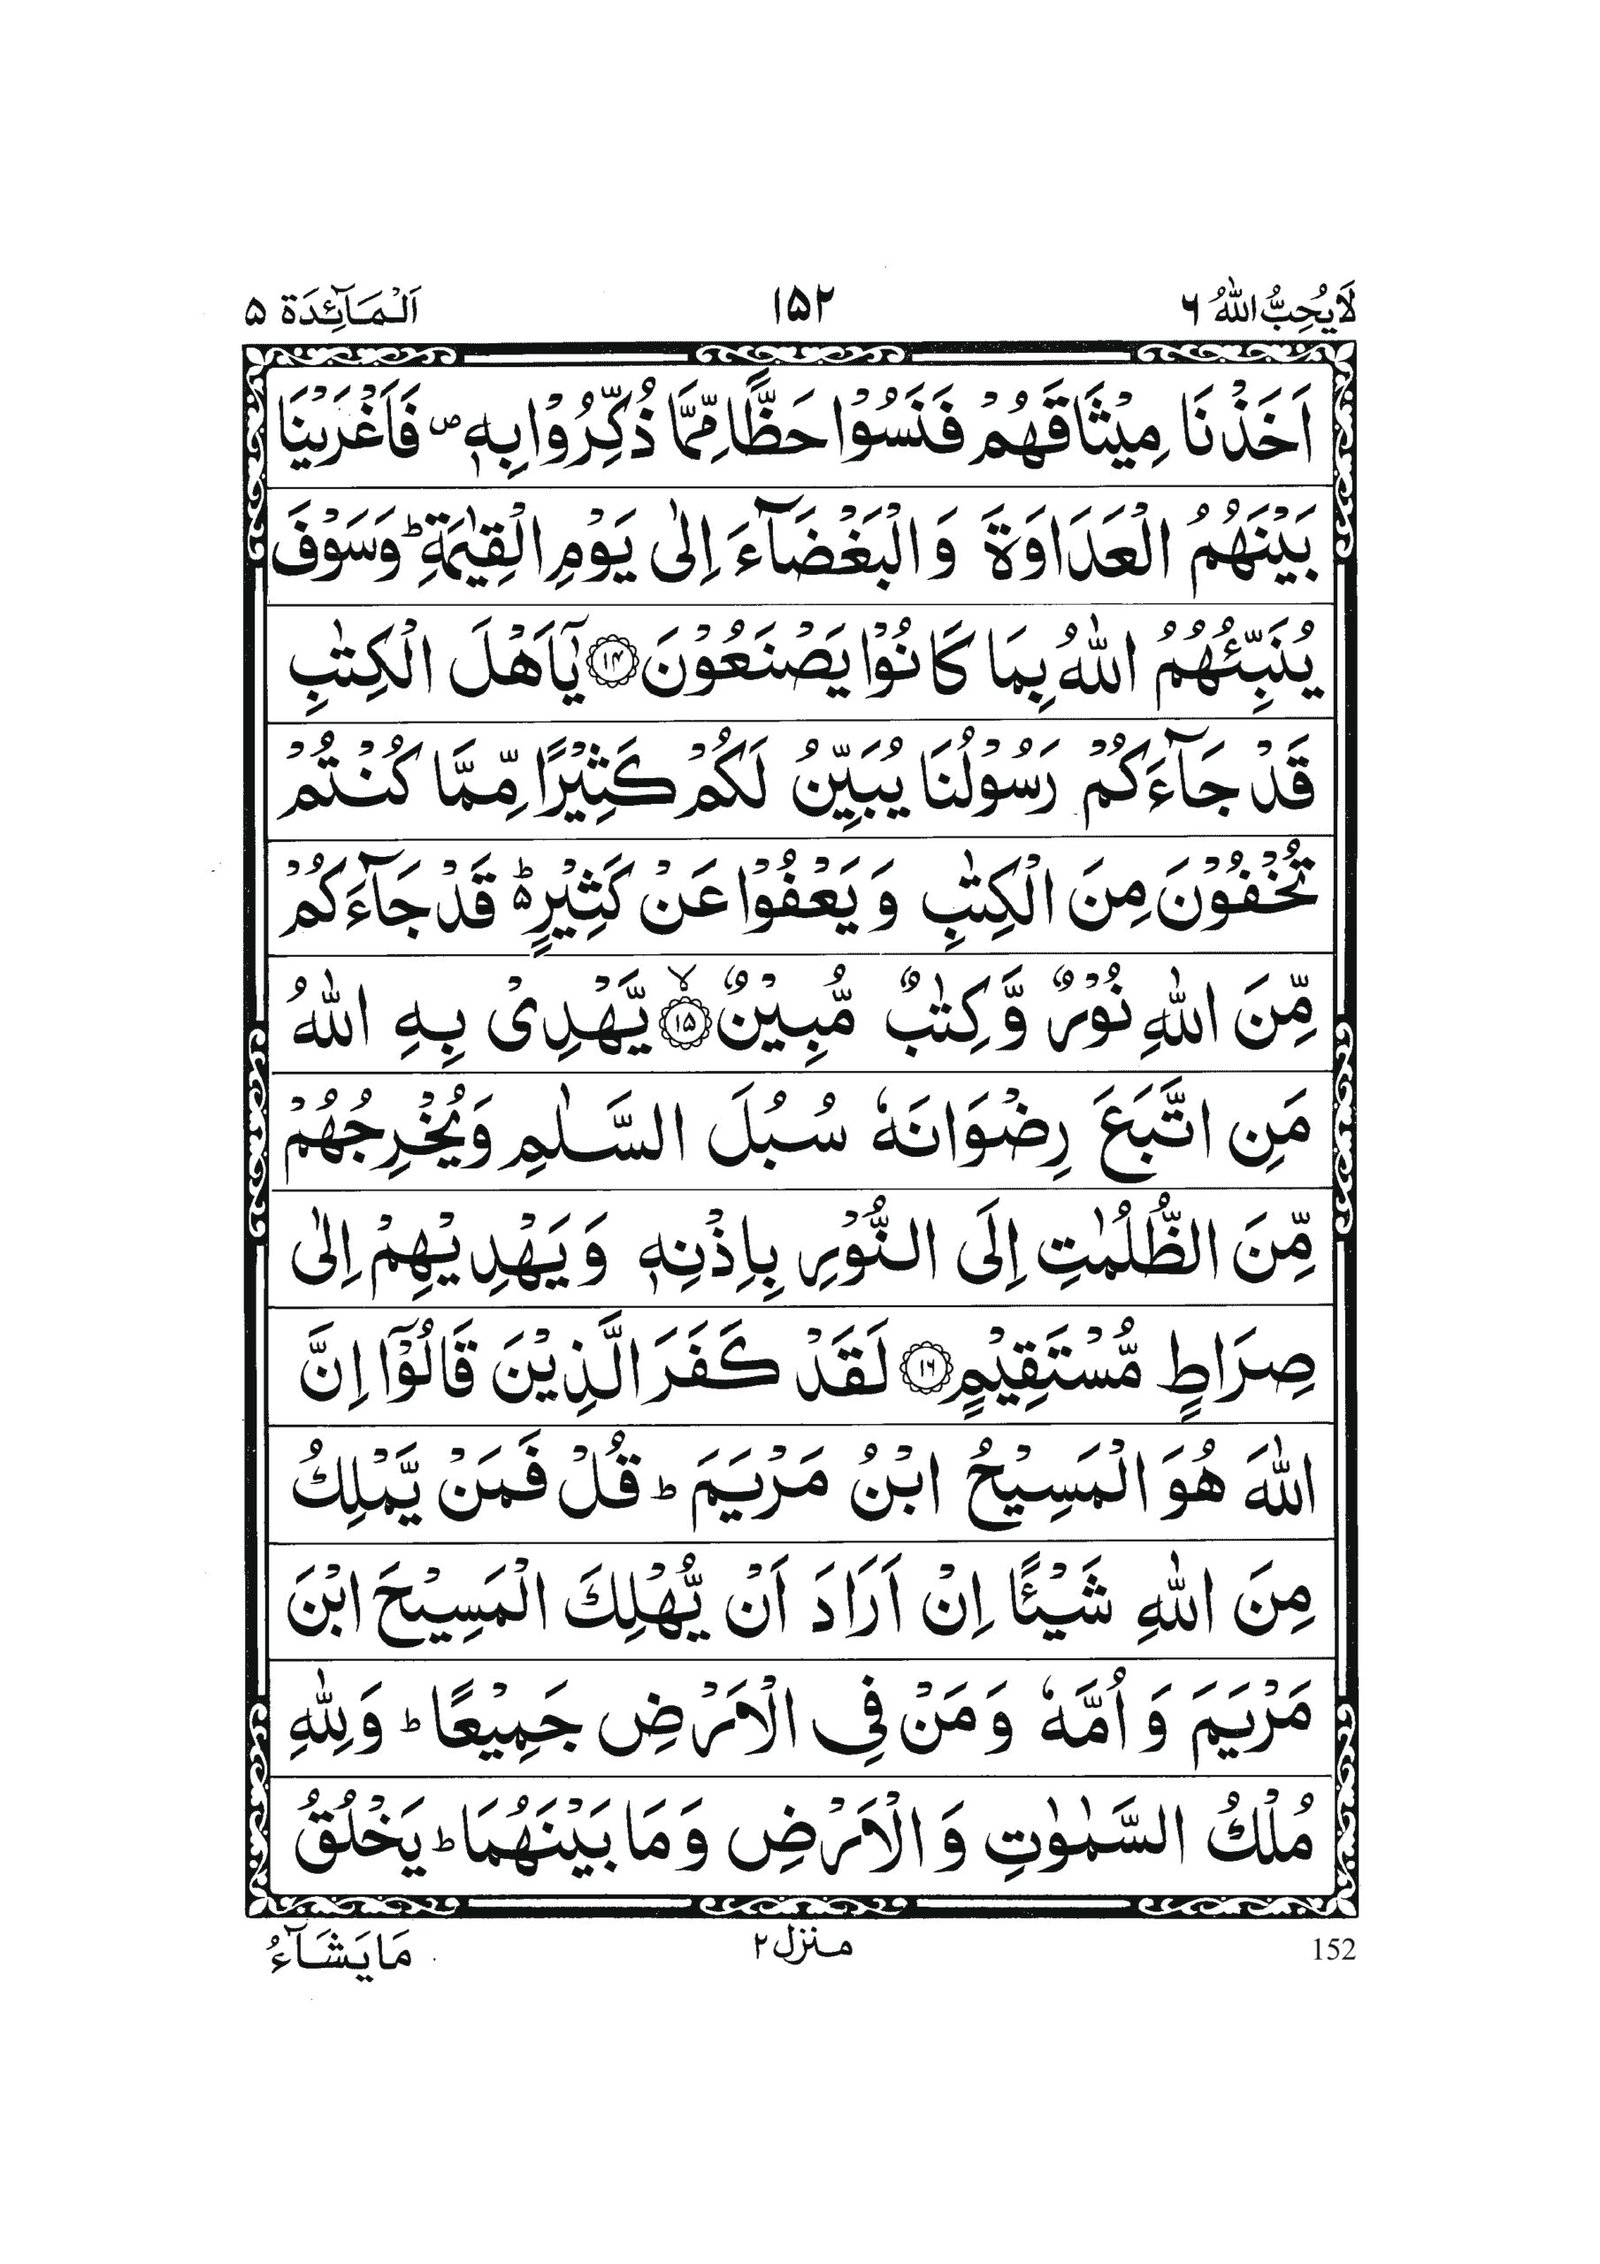 لَايُحِبُّ اللهُ ٦ ١٥٢ اَلْمَآئِدَة ۵
اَخَذْنَا مِيْثَاقَهُمْ فَنَسُوْا حَظًّا مِّمَّا ذُكِّرُوْا بِهٖ ۪ فَاَغْرَيْنَا
بَيْنَهُمُ الْعَدَاوَةَ وَالْبَغْضَآءَ اِلٰى يَوْمِ الْقِيٰمَةِ ؕ وَسَوْفَ
يُنَبِّئُهُمُ اللّٰهُ بِمَا كَانُوْا يَصْنَعُوْنَ ۝١٤ يٰۤاَهْلَ الْكِتٰبِ
قَدْ جَآءَكُمْ رَسُوْلُنَا يُبَيِّنُ لَكُمْ كَثِيْرًا مِّمَّا كُنْتُمْ
تُخْفُوْنَ مِنَ الْكِتٰبِ وَيَعْفُوْا عَنْ كَثِيْرٍ ؕ۬ قَدْ جَآءَكُمْ
مِّنَ اللّٰهِ نُوْرٌ وَّكِتٰبٌ مُّبِيْنٌ ۝١٥ۙ يَّهْدِىْ بِهِ اللّٰهُ
مَنِ اتَّبَعَ رِضْوَانَهٗ سُبُلَ السَّلٰمِ وَيُخْرِجُهُمْ
مِّنَ الظُّلُمٰتِ اِلَى النُّوْرِ بِاِذْنِهٖ وَيَهْدِيْهِمْ اِلٰى
صِرَاطٍ مُّسْتَقِيْمٍ ۝١٦ لَقَدْ كَفَرَ الَّذِيْنَ قَالُوْۤا اِنَّ
اللّٰهَ هُوَ الْمَسِيْحُ ابْنُ مَرْيَمَ ؕ قُلْ فَمَنْ يَّمْلِكُ
مِنَ اللّٰهِ شَيْـًٔا اِنْ اَرَادَ اَنْ يُّهْلِكَ الْمَسِيْحَ ابْنَ
مَرْيَمَ وَاُمَّهٗ وَمَنْ فِى الْاَرْضِ جَمِيْعًا ؕ وَلِلّٰهِ
مُلْكُ السَّمٰوٰتِ وَالْاَرْضِ وَمَا بَيْنَهُمَا ؕ يَخْلُقُ
152 منزل ٢ مَا يَشَآءُ